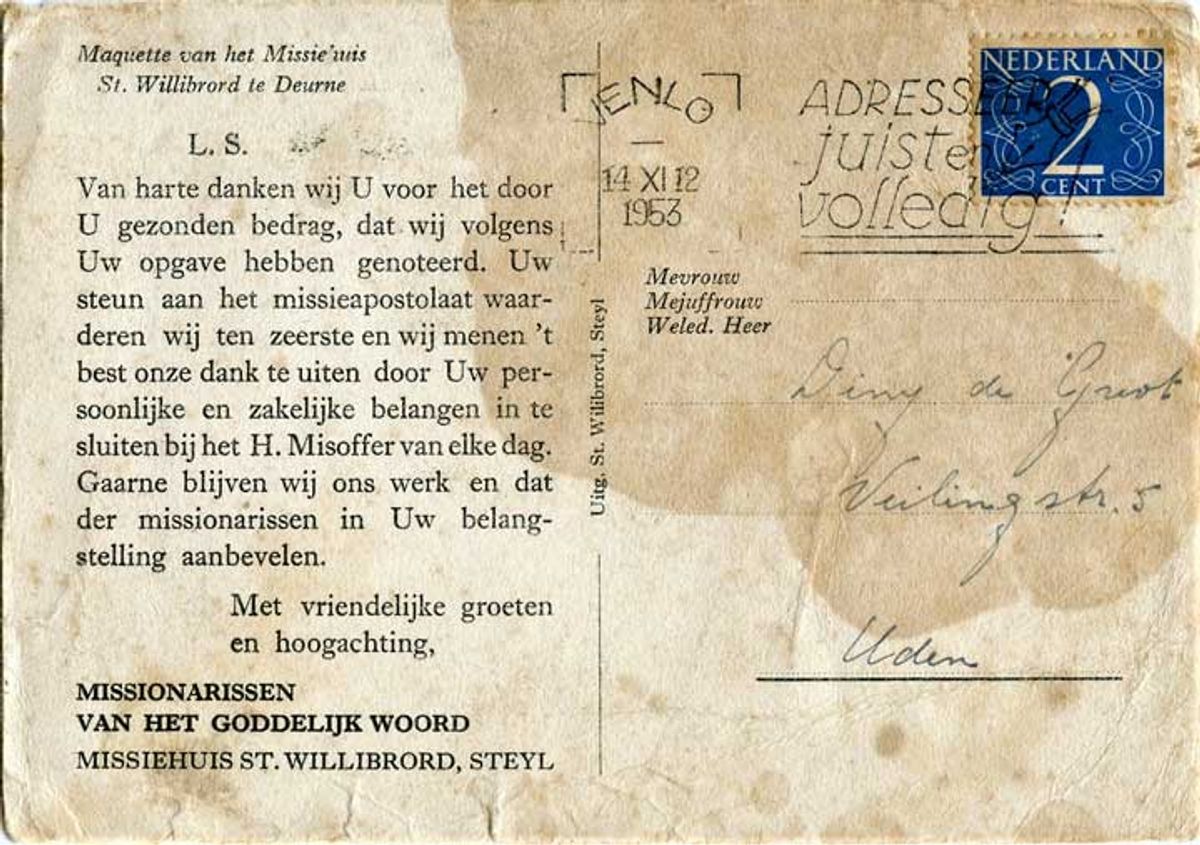 Maquette van het Missie'uis
St. Willibrord te Deurne
L. S.
Van harte danken wij U voor het door
U gezonden bedrag, dat wij volgens
Uw opgave hebben genoteerd. Uw
steun aan het missieapostolaat waar-
deren wij ten zeerste en wij menen 't
best onze dank te uiten door Uw per-
soonlijke en zakelijke belangen in te
sluiten bij het H. Misoffer van elke dag.
Gaarne blijven wij ons werk en dat
der missionarissen in Uw belang-
stelling aanbevelen.
Met vriendelijke groeten
en hoogachting,
MISSIONARISSEN
VAN HET GODDELIJK WOORD
MISSIEHUIS ST. WILLIBRORD, STEYL
Uitg. St. Wilibrord, Steyl
VENLO
14 XI 12
1953
ADRESSEER
juist en
volledig!
NEDERLAND
2
CENT
Mevrouw
Mejuffrouw
Weled. Heer
Diny de Groot
Veilingstr. 5
Uden